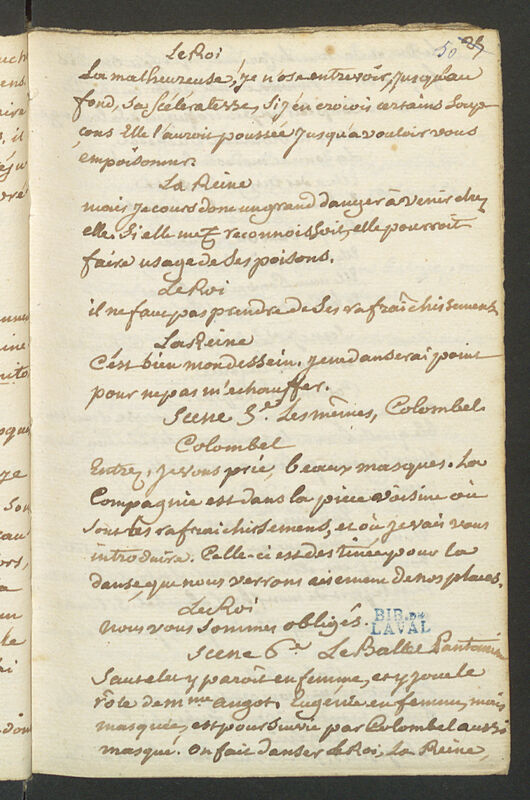 50
Le Roi
La malheureuse, je n'ose entrevoir, jusqu'au
fond, sa scélératesse, si j'en crois certains soup
çons Elle l'auroit poussée jusqu'à vouloir vous
empoisonner.
La Reine
mais je cours donc un grand danger à venir chez
elle. Si elle me reconnoissoit, elle pourroit
faire usage de ses poisons.
Le Roi
il ne faut pas prendre de ses rafraîchissements
La Reine
C'est bien mon dessein. je ne danserai point
pour ne pas m'echauffer.
Scene 5e. Les mêmes, Colombel.
Colombel
Entrez, je vous prie, beaux masques. La
Compagnie est dans la piece voisine où
sont les rafraichissemens, et où je vais vous
introduire. Celle-ci est destinée pour la
danse, que nous verrons aisement de nos places.
Le Roi
nous vous sommes obligés.
BIB. DE
LAVAL
Scene 6e Le Ballet Pantomime
Sautelet y paroît en femme, et y joue le
rôle de mme angot. Eugénie en femme, mais
masquée, est poursuivie par Colombel aussi
masqué. On fait danser le Roi, La Reine,